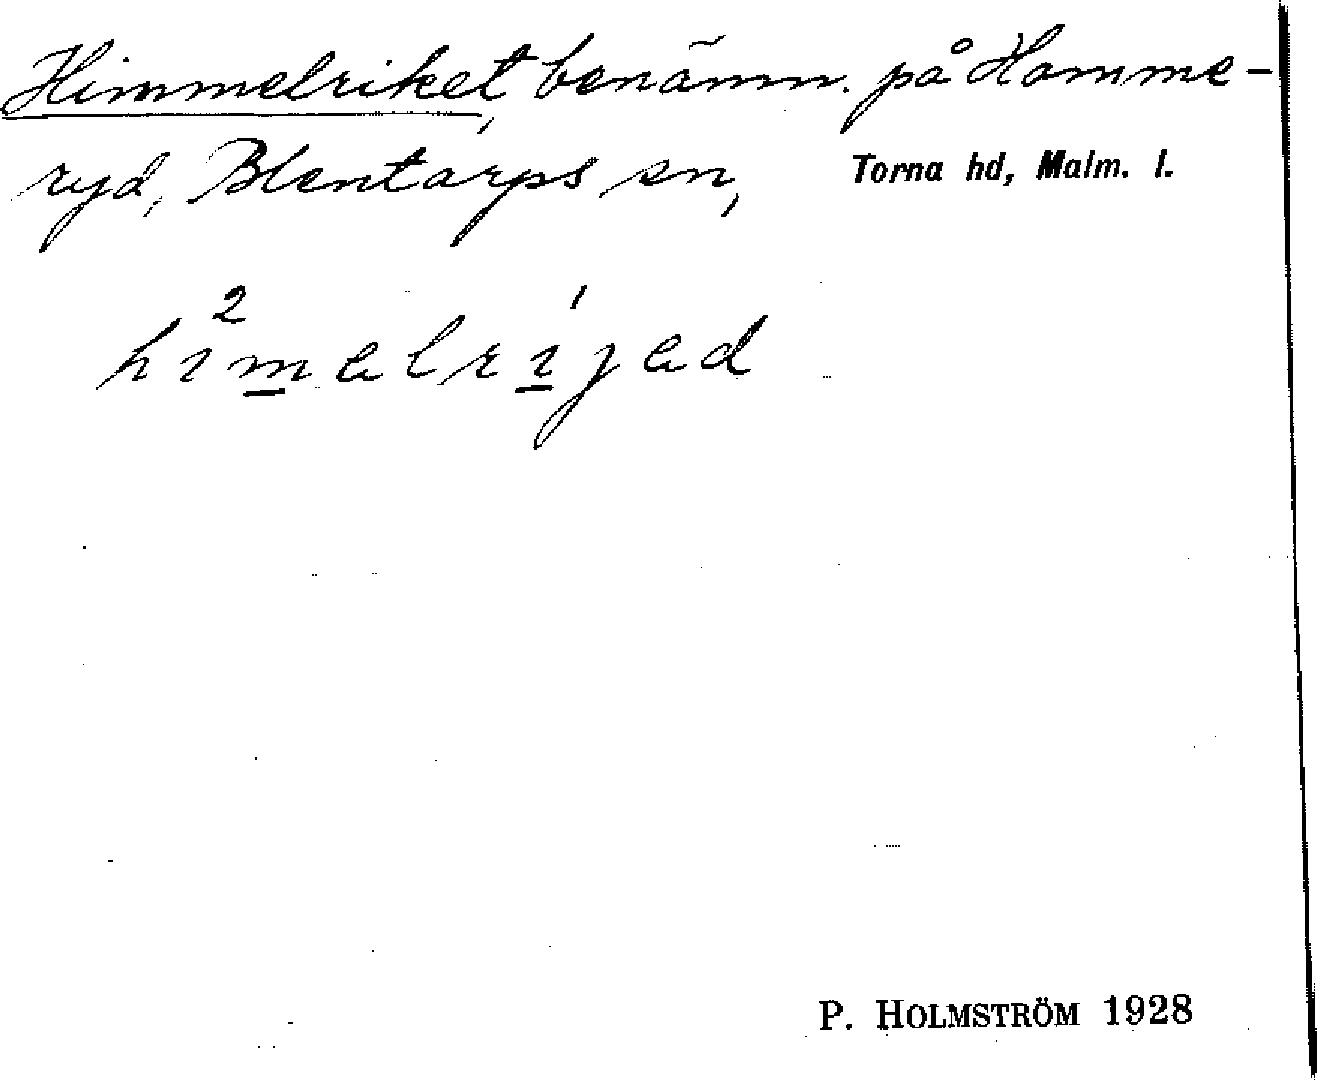 Himmelriket, benämn. på Homme-
ryd, Blentarps sn, Torna hd, Malm. l.
2 himelrijed
P. HOLMSTRÖM 1928